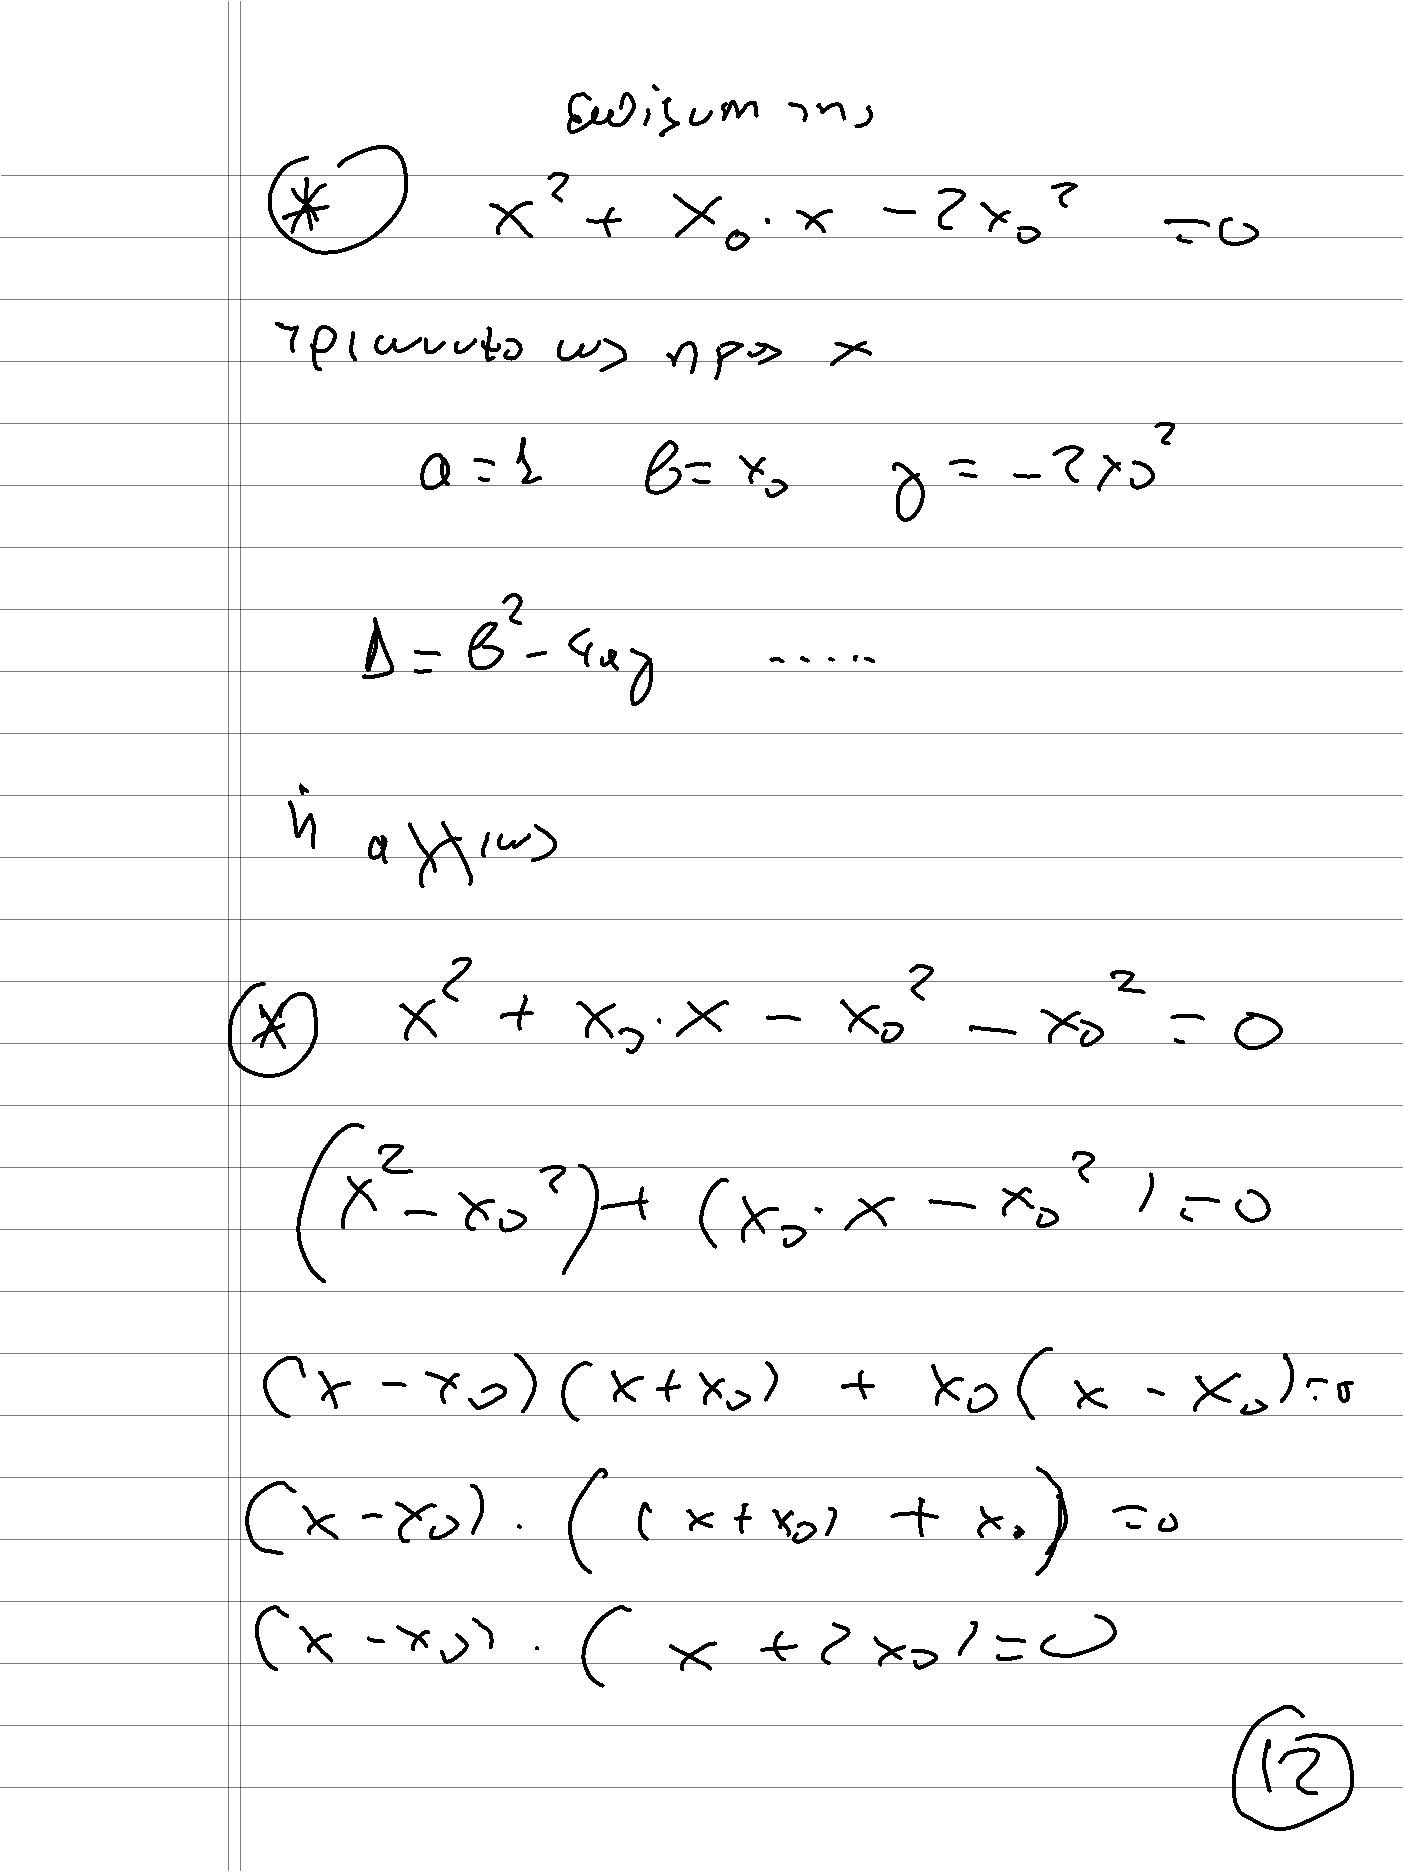 επίλυση της
* x² + x₀·x - 2x₀² = 0
τριώνυμο ως προς x
α = 1 β = x₀ γ = -2x₀²
Δ = β² - 4αγ .....
ή αλλιώς
* x² + x₀·x - x₀² - x₀² = 0
(x² - x₀²) + (x₀·x - x₀²) = 0
(x - x₀)(x + x₀) + x₀(x - x₀) = 0
(x - x₀)·((x + x₀) + x₀) = 0
(x - x₀)·(x + 2x₀) = 0
12